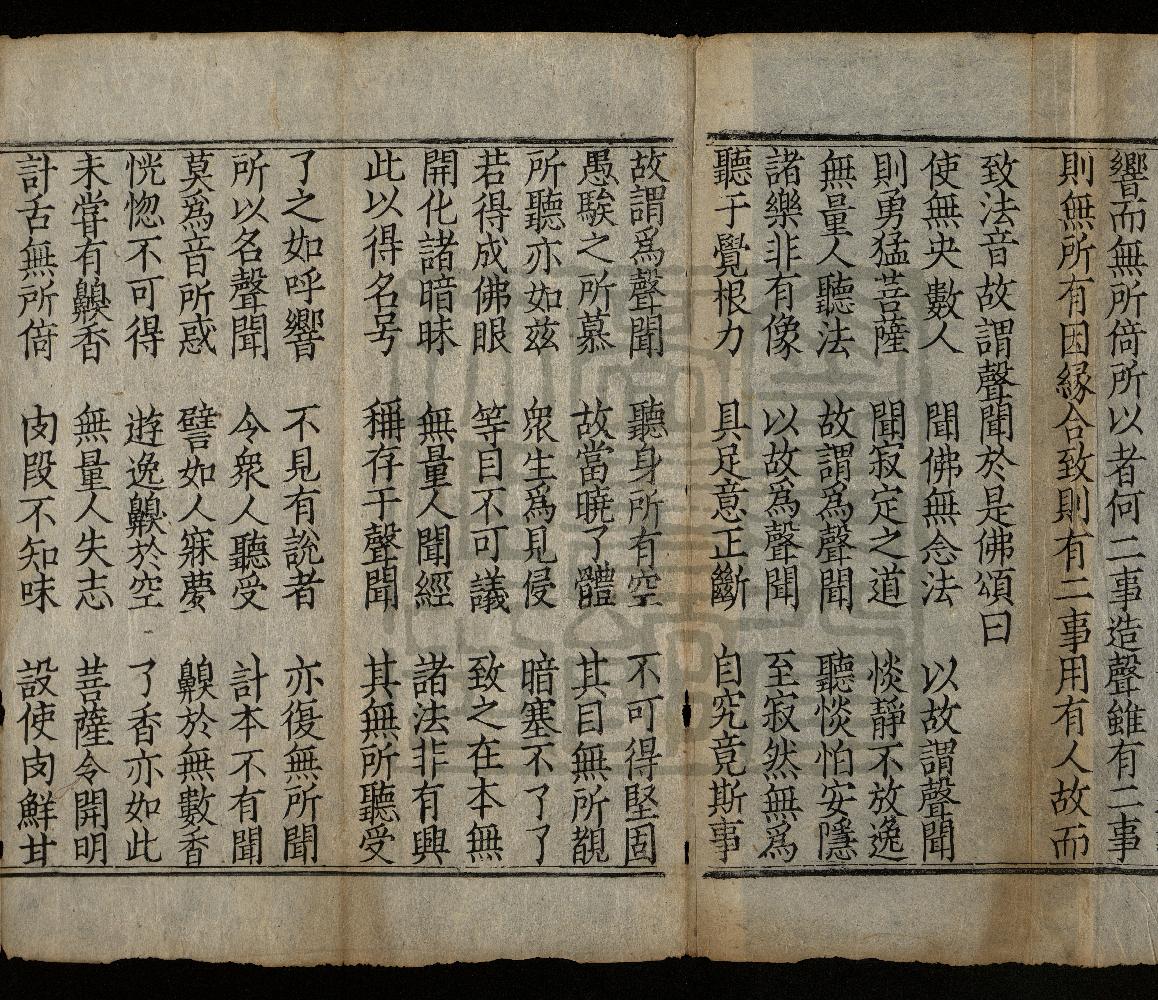 響而無所倚所以者何二事造聲雖有二事
則無所有因緣合致則有二事用有人故而
致法音故謂聲聞於是佛頌曰
使無央數人 聞佛無念法 以故謂聲聞
則勇猛菩薩 聞寂定之道 惔靜不放逸
無量人聽法 故謂爲聲聞 聽惔怕安隱
諸樂非有像 以故爲聲聞 至寂然無爲
聽于覺根力 具足意正斷 自究竟斯事
故謂爲聲聞 聽身所有空 不可得堅固
愚騃之所慕 故當曉了體 其目無所覩
所聽亦如兹 衆生爲見侵 暗塞不了了
若得成佛眼 等目不可議 致之在本無
開化諸暗昧 無量人聞經 諸法非有興
此以得名号 稱存于聲聞 其無所聽受
了之如呼響 不見有說者 亦復無所聞
所以名聲聞 令衆人聽受 計本不有聞
莫爲音所惑 譬如人寐夢 齅於無數香
恍惚不可得 遊逸齅於空 了香亦如此
未甞有齅香 無量人失志 菩薩令開明
計舌無所倚 肉段不知味 設使肉鮮甘